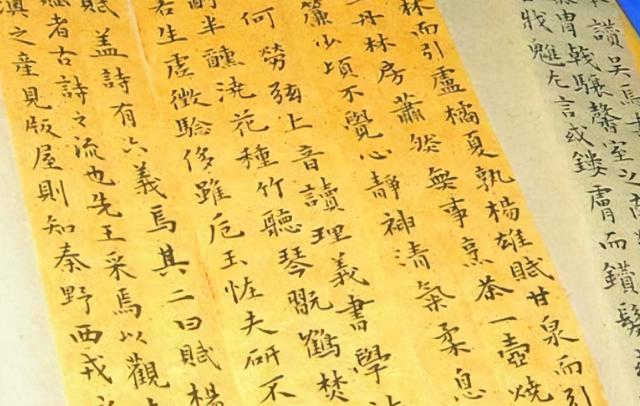 讚吳馬
冑戟驤馨室之
魋左言或鏤膚而鑽髮
林而引盧橘夏孰楊雄賦甘泉而引
丹林房蕭然無事烹茶一壺燒
簾少頃不覺心靜神清氣柔息
何勞弦上音讀理義書學
酌半醺澆花種竹聽琴翫鶴焚
若生虛徵驗侈雖卮玉恠夫研不
賦蓋詩有六義焉其二曰賦楊
者古詩之流也先王采焉以觀
滇之產見版屋則知秦野西戎